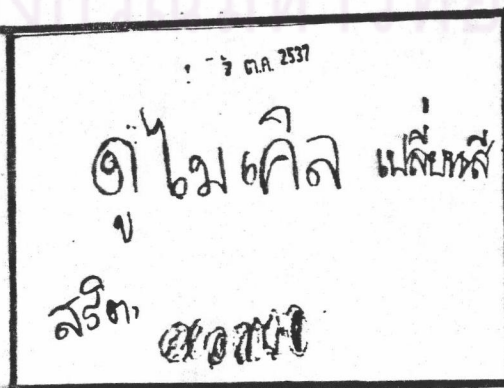 ต.ค. 2537
ดูไมเคิล เปลี่ยนสี
สริตา